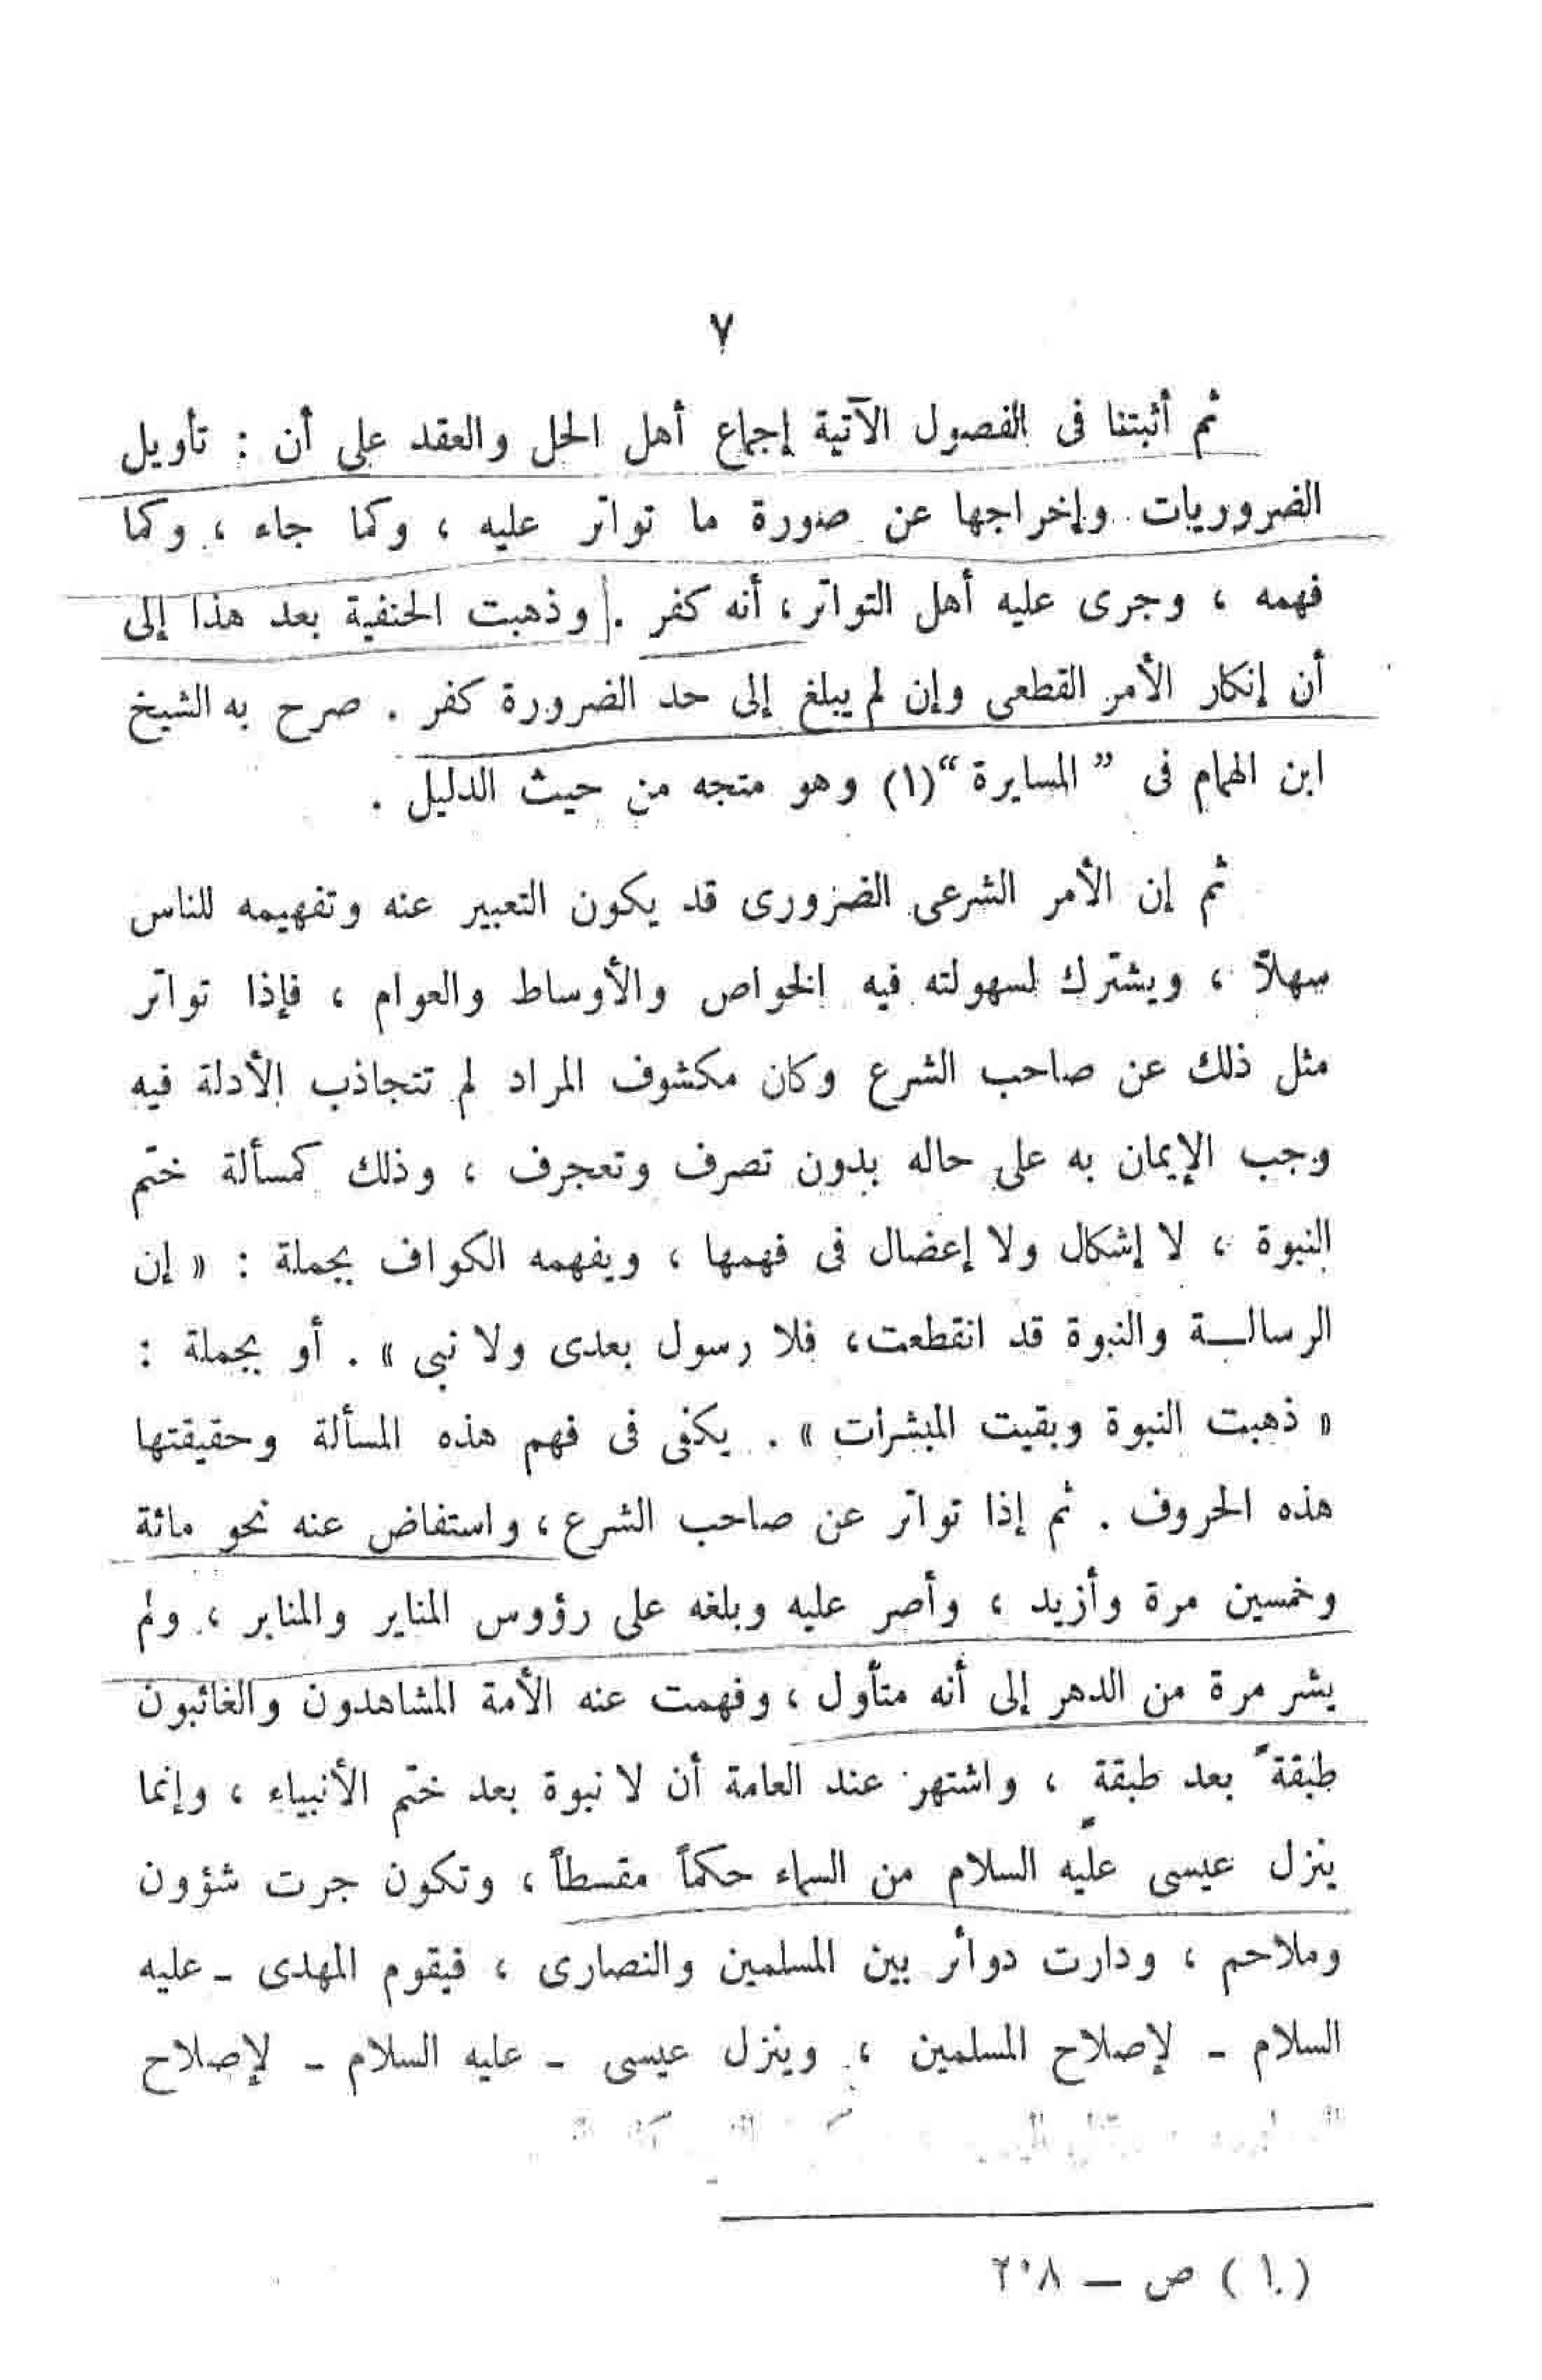 ٧
ثم أثبتنا فى الفصول الآتية إجماع أهل الحل والعقد على أن : تأويل
الضروريات وإخراجها عن صورة ما تواتر عليه ، وكما جاء ، وكما
فهمه ، وجرى عليه أهل التواتر ، أنه كفر . وذهبت الحنفية بعد هذا إلى
أن إنكار الأمر القطعى وإن لم يبلغ إلى حد الضرورة كفر . صرح به الشيخ
ابن الهمام فى ” المسايرة “(١) وهو متجه من حيث الدليل .
ثم إن الأمر الشرعى الضرورى قد يكون التعبير عنه وتفهيمه للناس
سهلاً ، ويشترك لسهولته فيه الخواص والأوساط والعوام ، فإذا تواتر
مثل ذلك عن صاحب الشرع وكان مكشوف المراد لم تتجاذب الأدلة فيه
وجب الإيمان به على حاله بدون تصرف وتعجرف ، وذلك كمسألة ختم
النبوة ، لا إشكال ولا إعضال فى فهمها ، ويفهمه الكواف بجملة : « إن
الرسالــة والنبوة قد انقطعت، فلا رسول بعدى ولا نبى » . أو بجملة :
« ذهبت النبوة وبقيت المبشرات » . يكفى فى فهم هذه المسألة وحقيقتها
هذه الحروف . ثم إذا تواتر عن صاحب الشرع ، واستفاض عنه نحو مائة
وخمسين مرة وأزيد ، وأصر عليه وبلغه على رؤوس المناير والمنابر ، ولم
يشر مرة من الدهر إلى أنه متأول ، وفهمت عنه الأمة المشاهدون والغائبون
طبقةً بعد طبقةٍ ، واشتهر عند العامة أن لا نبوة بعد ختم الأنبياء ، وإنما
ينزل عيسى عليه السلام من السماء حكماً مقسطاً ، وتكون جرت شؤون
وملاحم ، ودارت دوائر بين المسلمين والنصارى ، فيقوم المهدى ـ عليه
السلام ـ لإصلاح المسلمين ، وينزل عيسى ـ عليه السلام ـ لإصلاح
(١) ص ــ ٢٠٨